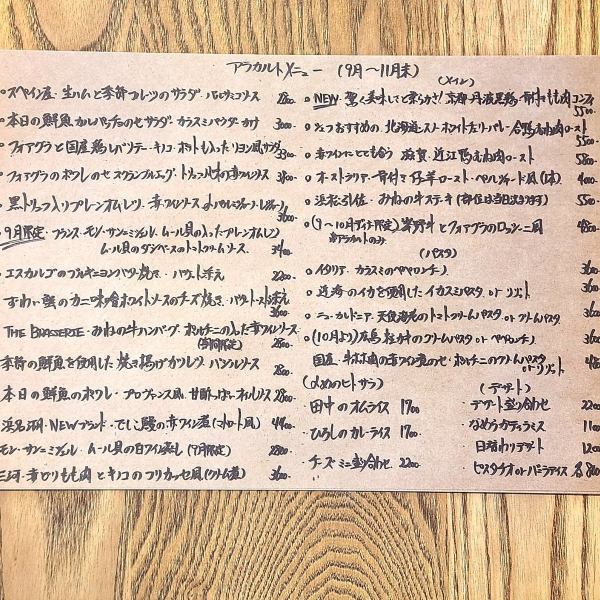 アラカルトメニュー (9月〜11月末)
・スペイン産・生ハムと季節フルーツのサラダ バルサミコソース 2800
・本日の鮮魚カルパッチョのせサラダ カラスミパウダーかけ 3000
・フォアグラと国産鶏レバーソテー・キノコ・ポテト入ったリヨン風サラダ 3300
・フォアグラのポワレのせスクランブルエッグ・トリュフ 赤ワインソース 3800
・黒トリュフ入りプレーンオムレツ・赤ワインソース 3600
・9月限定・フランス・モン・サン=ミッシェル ムール貝の入ったプレーンオムレツ
ムール貝のダシベースのトマトクリームソース 3400
・エスカルゴのブルギニョンバター焼き・バケット添え 2200
・ずわい蟹のカニ味噌ホワイトソースのチーズ焼き・バケットトースト添え 3600
・THE BRASSERIE・みねの牛ハンバーグ ポルチーニの入った赤ワインソース 2800
季節の鮮魚を使用した焼き揚げカツレツ バジルソース 2800
本日の鮮魚のポワレ・プロヴァンス風 2800
浜名湖・NEWブランド・でしこ鰻の赤ワイン煮(マトロート風) 4400
モン・サン=ミッシェル・ムール貝の白ワイン蒸し(9月限定) 2800
三河・赤どりもも肉とキノコのフリカッセ風(クリーム煮) 3600
(メイン)
・NEW 驚く美味しさと柔らかさ! 京都・丹波黒鶏・骨付もも肉コンフィ 5500
・シェフおすすめの 北海道・スノーホワイトチェリバレー・合鴨むね肉ロースト 5500
・赤ワインにとても合う 滋賀・近江鴨むね肉ロースト 5800
・オーストラリア・骨付き仔羊ロースト・ペルシャード風(2本) 4000
・浜松引佐・みねの牛ステキ(部位は当日決まります) 5500
・(9〜10月ディナー限定)峯野牛とフォアグラのロッシーニ風
※アラカルトのみ 4800
(パスタ)
・イタリア・カラスミのペペロンチーノ 3600
・近海のイカを使用したイカスミパスタ or リゾット 3600
・ニューカレドニア・天使海老のトマトクリームパスタ or クリームパスタ 3600
・(10月より)広島・牡カキのクリームパスタ or ペペロンチーノ 3600
国産・牛ホホ肉の赤ワイン煮のせ・ポルチーニのクリームパスタ or リゾット
(〆めのヒトサラ)
・田中のオムライス 1700
・ひろしのカレーライス 1700
・チーズ・ミニ盛り合わせ 2200
(デザート)
・デザート盛り合わせ 2200
・なめらかティラミス 1100
・日替わりデザート 1200
・ピスタチオ or バニラアイス 各800